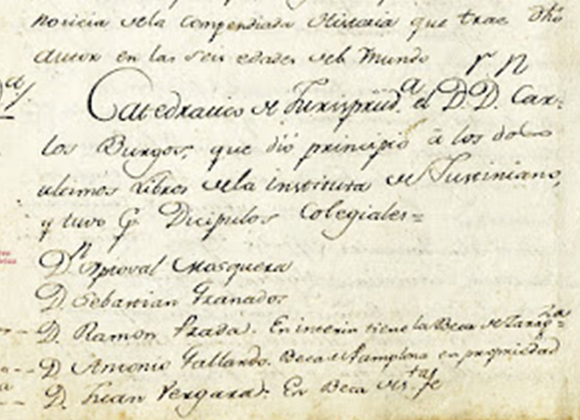 noticia dela Compendiada Historia que trae dho
Autor en las seis edades del Mundo
Catedratico de Jurisprud.a el D.D. Car-
los Burgos, que dió principio á los dos
ultimos Libros dela instituta de Justiniano,
y tuvo Dicipulos Colegiales=
D.n Xptoval Mosquera
D. Sebastian Granados
D. Ramon Prada. En interin tiene la Beca de Zarag.za
D Antonio Gallardo. Beca de Pamplona en propriedad
D. Juan Vergara. En Beca de S.ta fe